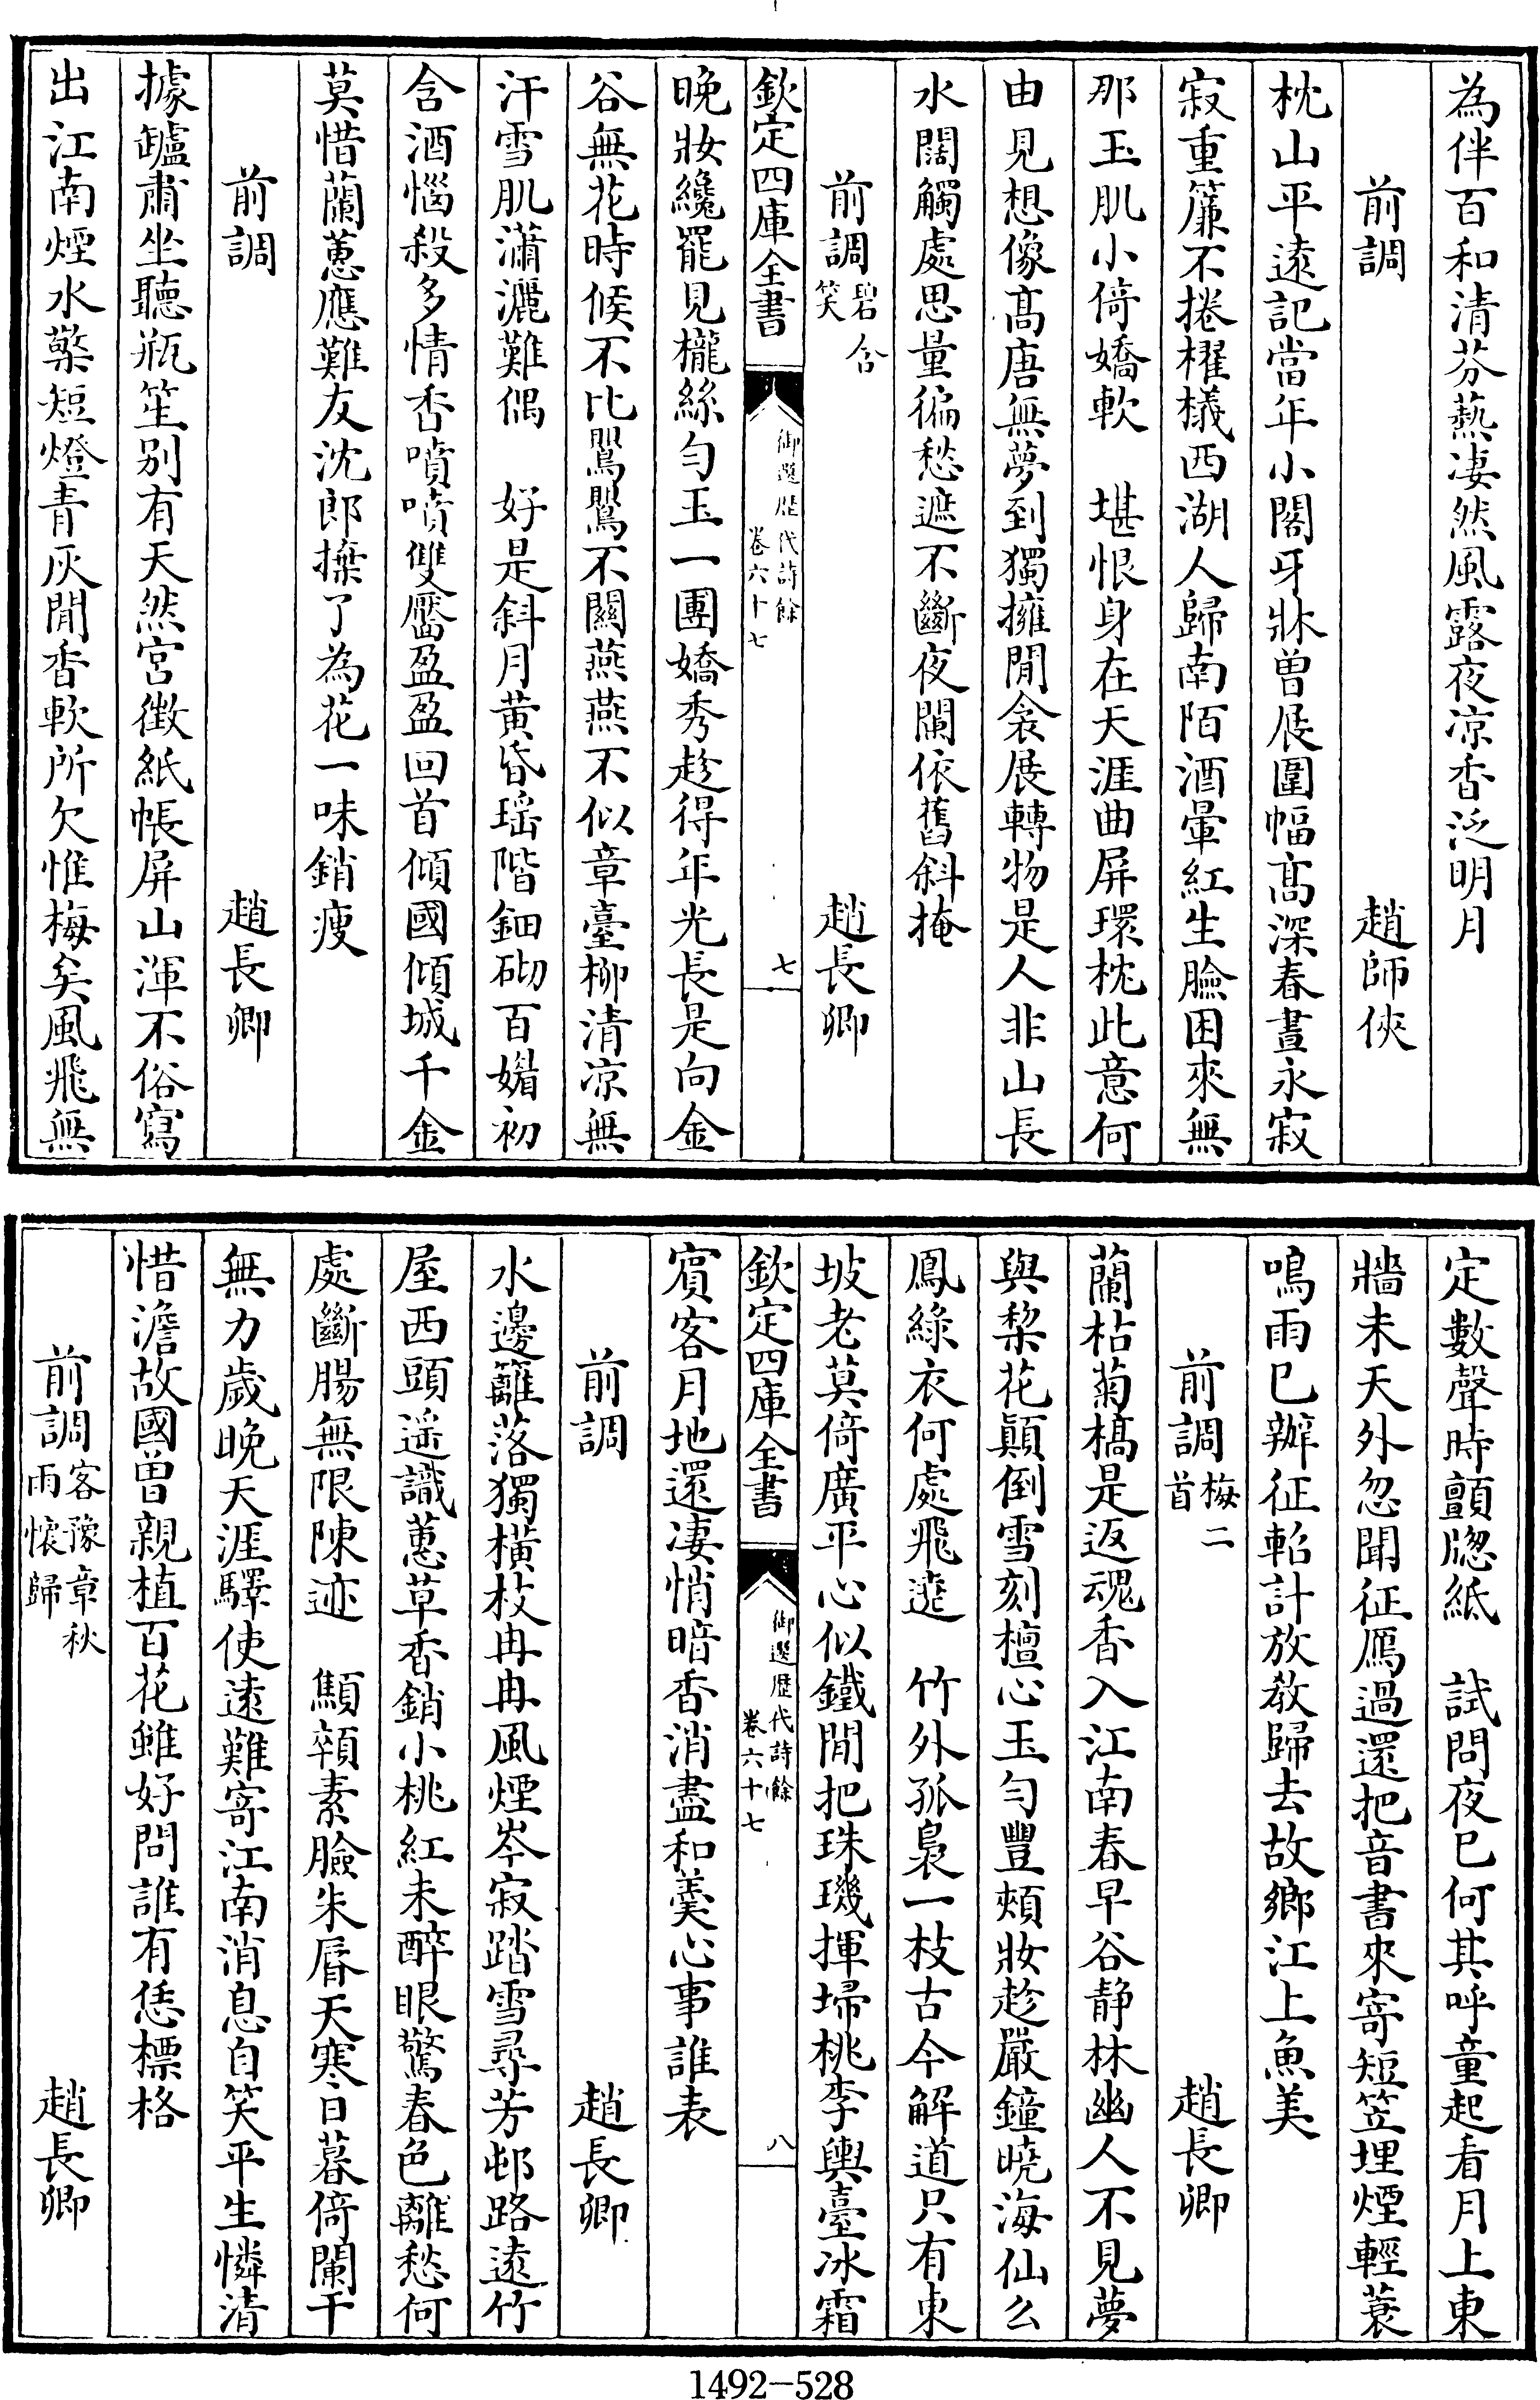 為伴百和清芬爇凄然風露夜凉香泛明月
前調　趙師俠
枕山平逺記當年小閣牙牀曽展圍幅髙深春晝永寂
寂重簾不捲櫂檥西湖人歸南陌酒暈紅生臉困來無
那玉肌小倚嬌軟　堪恨身在天涯曲屏環枕此意何
由見想像髙唐無夢到獨擁閒衾展轉物是人非山長
水闊觸處思量徧愁遮不斷夜闌依舊斜掩
前調碧含笑　趙長卿
欽定四庫全書　御選歴代詩餘　卷六十七　七
晚妝纔罷見櫳絲勻玉一團嬌秀趁得年光長是向金
谷無花時候不比鸎鸎不關燕燕不似章臺柳清凉無
汗雪肌瀟灑難偶　好是斜月黄昏瑶階鈿砌百媚初
含酒惱殺多情香噴噴雙靨盈盈回首傾國傾城千金
莫惜蘭蕙應難友沈郎擽了為花一味銷瘦
前調　趙長卿
據罏肅坐聽瓶笙别有天然宮徴紙帳屏山渾不俗寫
出江南煙水檠短燈青灰閒香軟所欠惟梅矣風飛無
定數聲時顫牕紙　試問夜已何其呼童起看月上東
牆未天外忽聞征鴈過還把音書來寄短笠埋煙輕蓑
鳴雨已辦征軺計放教歸去故鄉江上魚美
前調梅二首　趙長卿
蘭枯菊槁是返魂香入江南春早谷静林幽人不見夢
與棃花顛倒雪刻檀心玉勻豐頰妝趁嚴鐘曉海仙么
鳳綠衣何處飛遶　竹外孤裊一枝古今解道只有東
坡老莫倚廣平心似鐵閒把珠璣揮埽桃李輿臺冰霜
欽定四庫全書　御選歴代詩餘　卷六十七　八
賔客月地還凄悄暗香消盡和羮心事誰表
前調　趙長卿
水邊籬落獨横枝冉冉風煙岑寂踏雪尋芳邨路逺竹
屋西頭遥識蕙草香銷小桃紅未醉眼驚春色離愁何
處斷腸無限陳迹　顦顇素臉朱脣天寒日暮倚闌干
無力歲晚天涯驛使逺難寄江南消息自笑平生憐清
惜澹故國曽親植百花雖好問誰有恁標格
前調客豫章秋雨懷歸　趙長卿
1492-528